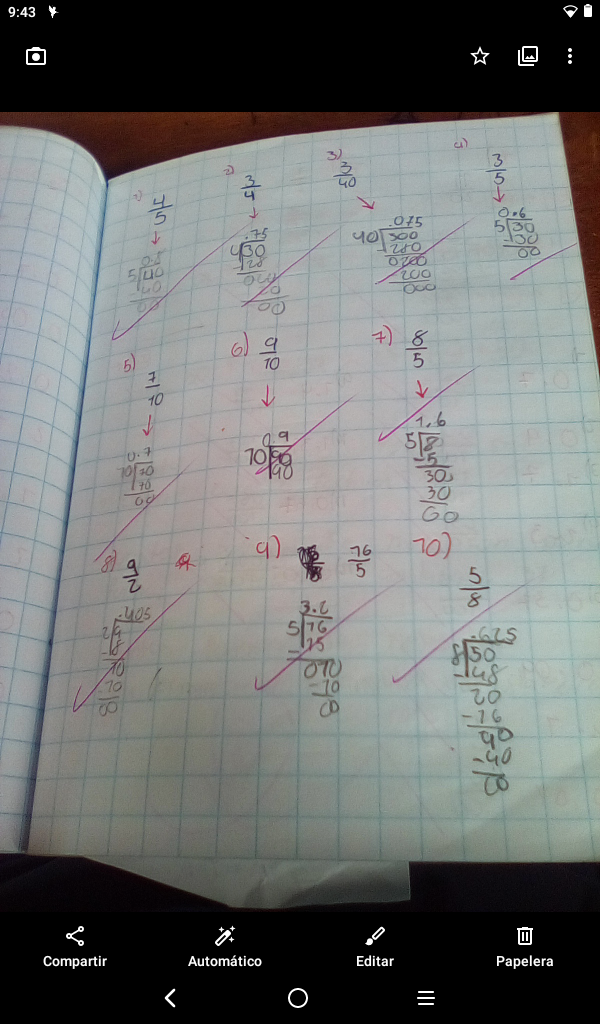 9:43
1) 4/5
2) 3/4
3) 3/40
4) 3/5
0.8
5 40
40
00
.75
4 30
-28
0
00
.075
40 300
-280
0200
200
000
0.6
5 30
30
00
5) 7/10
6) 9/10
7) 8/5
0.7
10 70
70
00
0.9
10 90
90
1.6
5 8
-5
30
30
00
8) 9/2
9) 16/5
10) 5/8
.405
2 9
-8
10
10
00
3.2
5 16
-15
010
-10
0
.625
8 50
-48
20
-16
40
-40
0
Compartir
Automático
Editar
Papelera